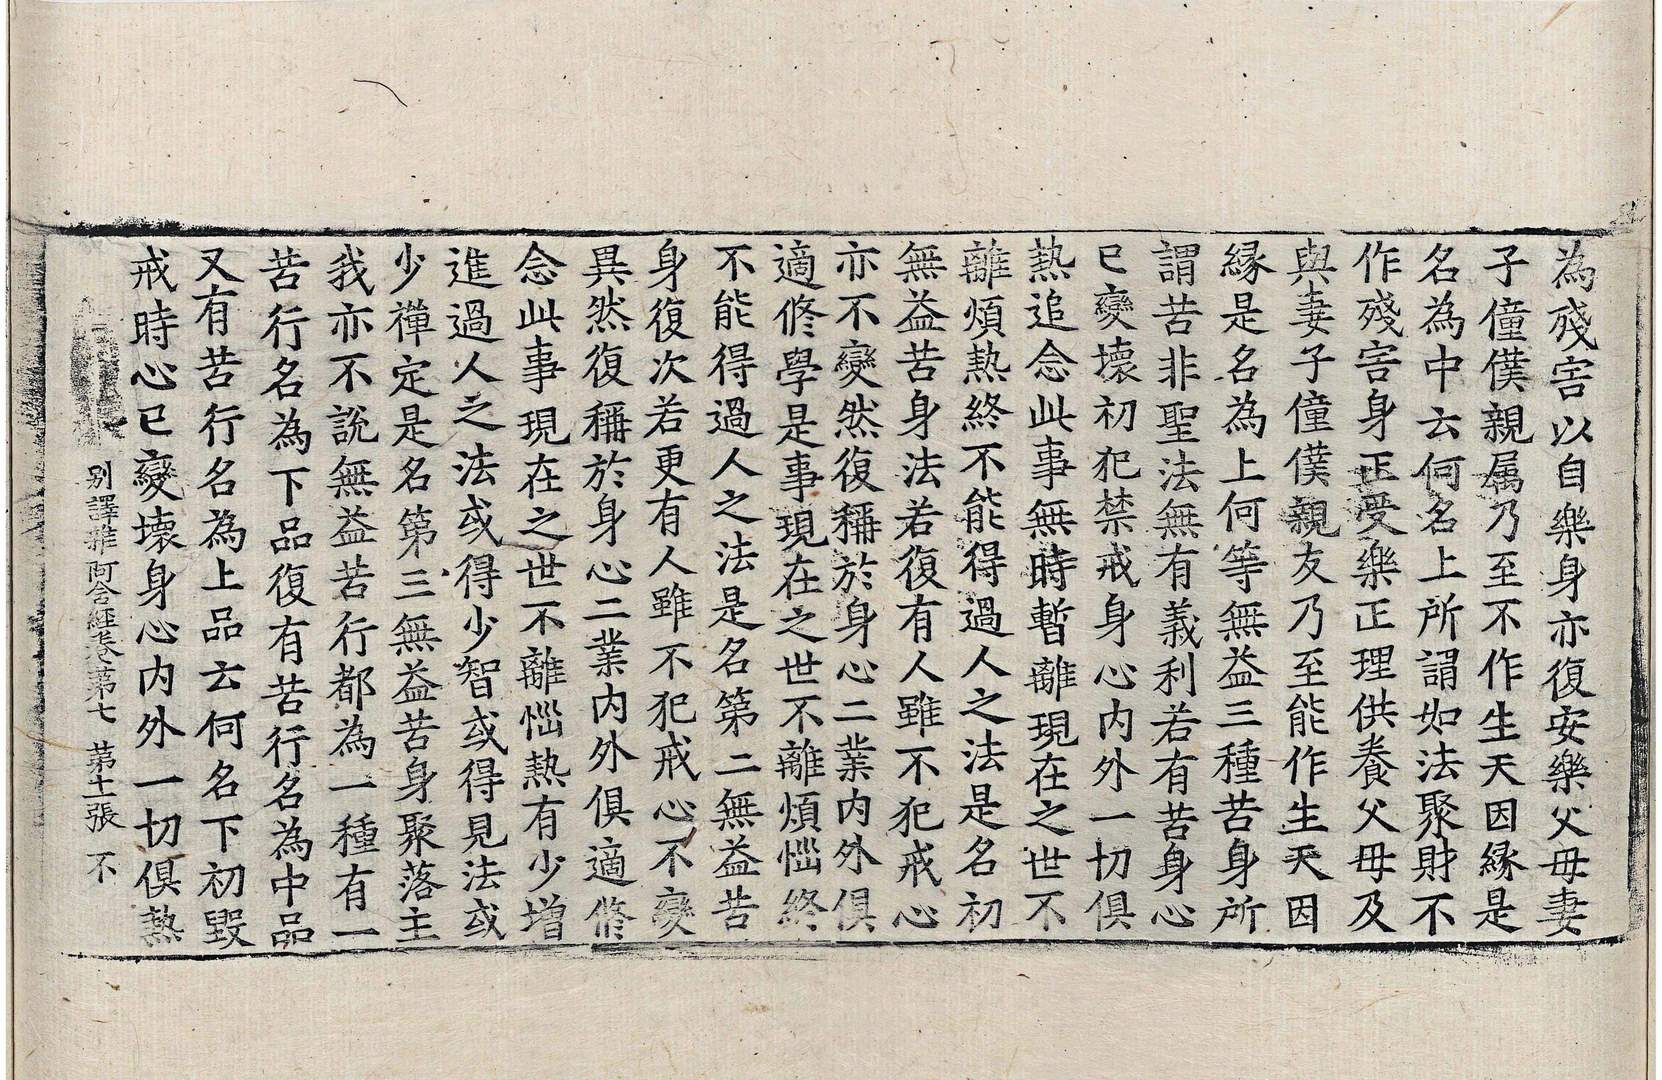 為殘害以自樂身亦復安樂父母妻
子僮僕親属乃至不作生天因縁是
名為中云何名上所謂如法聚財不
作殘害身正受樂正理供養父母及
與妻子僮僕親友乃至能作生天因
縁是名為上何等無益三種苦身所
謂苦非聖法無有義利若有苦身心
已變壞初犯禁戒身心内外一切俱
熱追念此事無時暫離現在之世不
離煩熱終不能得過人之法是名初
無益苦身法若復有人雖不犯戒心
亦不變然復稱於身心二業内外俱
適脩學是事現在之世不離煩惱終
不能得過人之法是名第二無益苦
身復次若更有人雖不犯戒心不變
異然復稱於身心二業内外俱適脩
念此事現在之世不離惱熱有少增
進過人之法或得少智或得見法或
少禪定是名第三無益苦身聚落主
我亦不說無益苦行都為一種有一
苦行名為下品復有苦行名為中品
又有苦行名為上品云何名下初毀
戒時心已變壞身心内外一切俱熱
别譯雜阿含經卷第七 第十一張 不